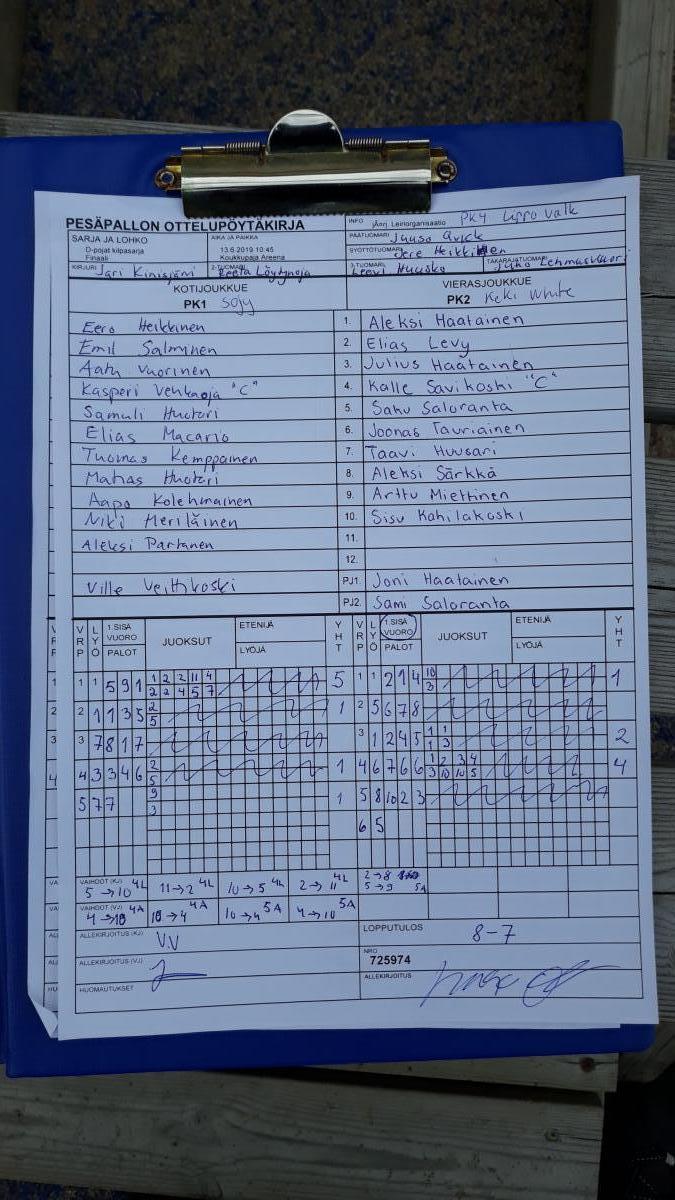 PESÄPALLON OTTELUPÖYTÄKIRJA
INFO Järj. Leiriorganisaatio PK4 Lippo Valk
SARJA JA LOHKO
D-pojat kilpasarja
Finaali
AIKA JA PAIKKA
13.6.2019 10:45
Koukkupaja Areena
PÄÄTUOMARI Juuso
SYÖTTÖTUOMARI Jere Heikkinen
KIRJURI Jari
2-TUOMARI Reeta Löytynoja
3-TUOMARI Leevi Huusko
TAKARAJATUOMARI Juho
KOTIJOUKKUE
PK1 SoJy
VIERASJOUKKUE
PK2 KeKi White
Eero Heikkinen 1. Aleksi Haatainen
Emil Salminen 2. Elias Levy
Aatu Vuorinen 3. Julius Haatainen
Kasperi Venkaoja "C" 4. Kalle Savikoski "C"
Samuli Huotari 5. Saku Saloranta
Elias Macario 6. Joonas Tauriainen
Tuomas Kemppainen 7. Taavi Huusari
Matias Huotari 8. Aleksi Särkkä
Aapo Kolehmainen 9. Arttu Miettinen
Niki Meriläinen 10. Sisu Kahilakoski
Aleksi Partanen 11.
12.
Ville Veihkoski PJ1. Joni Haatainen
PJ2. Sami Saloranta
VRP LYÖ 1.SISÄ VUORO PALOT JUOKSUT ETENIJÄ LYÖJÄ YHT VRP LYÖ 1.SISÄ VUORO PALOT JUOKSUT ETENIJÄ LYÖJÄ YHT
1 1 5 9 1 1 2 2 11 4 5 1 1 2 1 4 10 1
2 2 4 5 7 3
2 1 1 3 5 2 1 2 5 6 7 8
5
3 7 8 1 7 3 1 2 4 5 1 1 2
1 3
4 3 3 4 6 2 1 4 6 7 6 6 1 2 3 4 4
5 3 10 10 5
5 7 7 9 1 5 8 10 2 3
3
6 5
VAIHDOT (KJ)
5→10 4L 11→2 4L 10→5 4L 2→11 4L 2→8
5→9 5A
VAIHDOT (VJ)
4→10 4A 10→4 4A 10→4 5A 4→10 5A
ALLEKIRJOITUS (KJ) V.V
LOPPUTULOS 8-7
ALLEKIRJOITUS (VJ)
NRO
725974
HUOMAUTUKSET
ALLEKIRJOITUS